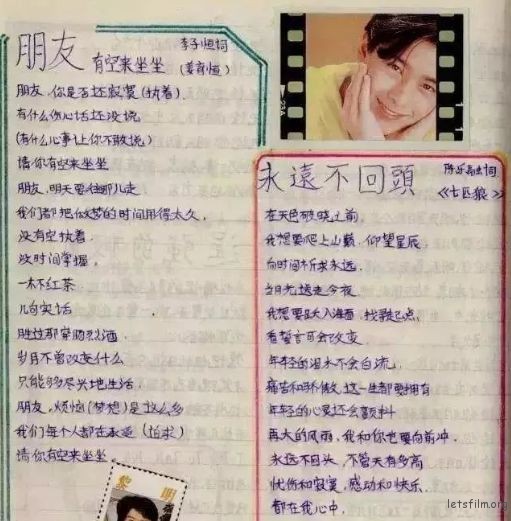 朋友
有空来坐坐
李子恒词
(姜育恒)
朋友,你是否还寂寞(执着)
有什么伤心话还没说
(有什么心事让你不敢说)
请你有空来坐坐
朋友,明天要往哪儿走
我们都把做梦的时间用得太久,
没有空执着.
没时间掌握,
一杯红茶
几句实话
胜过那穿肠烈酒.
岁月不曾改变什么
只能够尽兴地生活.
朋友,烦恼(梦想)是这么多
我们每个人都在承受(追求)
请你有空来坐坐.
黎 明
永遠不回頭
陈乐融词
《七匹狼》
在天色破晓之前,
我想要爬上山巅,仰望星辰
向时间祈求永远.
当月光送走今夜
我想要跃入海面 找寻起点,
看誓言可会改变
年轻的泪水不会白流,
痛苦和骄傲,这一生都要拥有
年轻的心灵还会颤抖
再大的风雨,我和你也要向前冲.
永远不回头 不管天有多高
忧伤和寂寞,感动和快乐,
都在我心中.
letsfilm.org